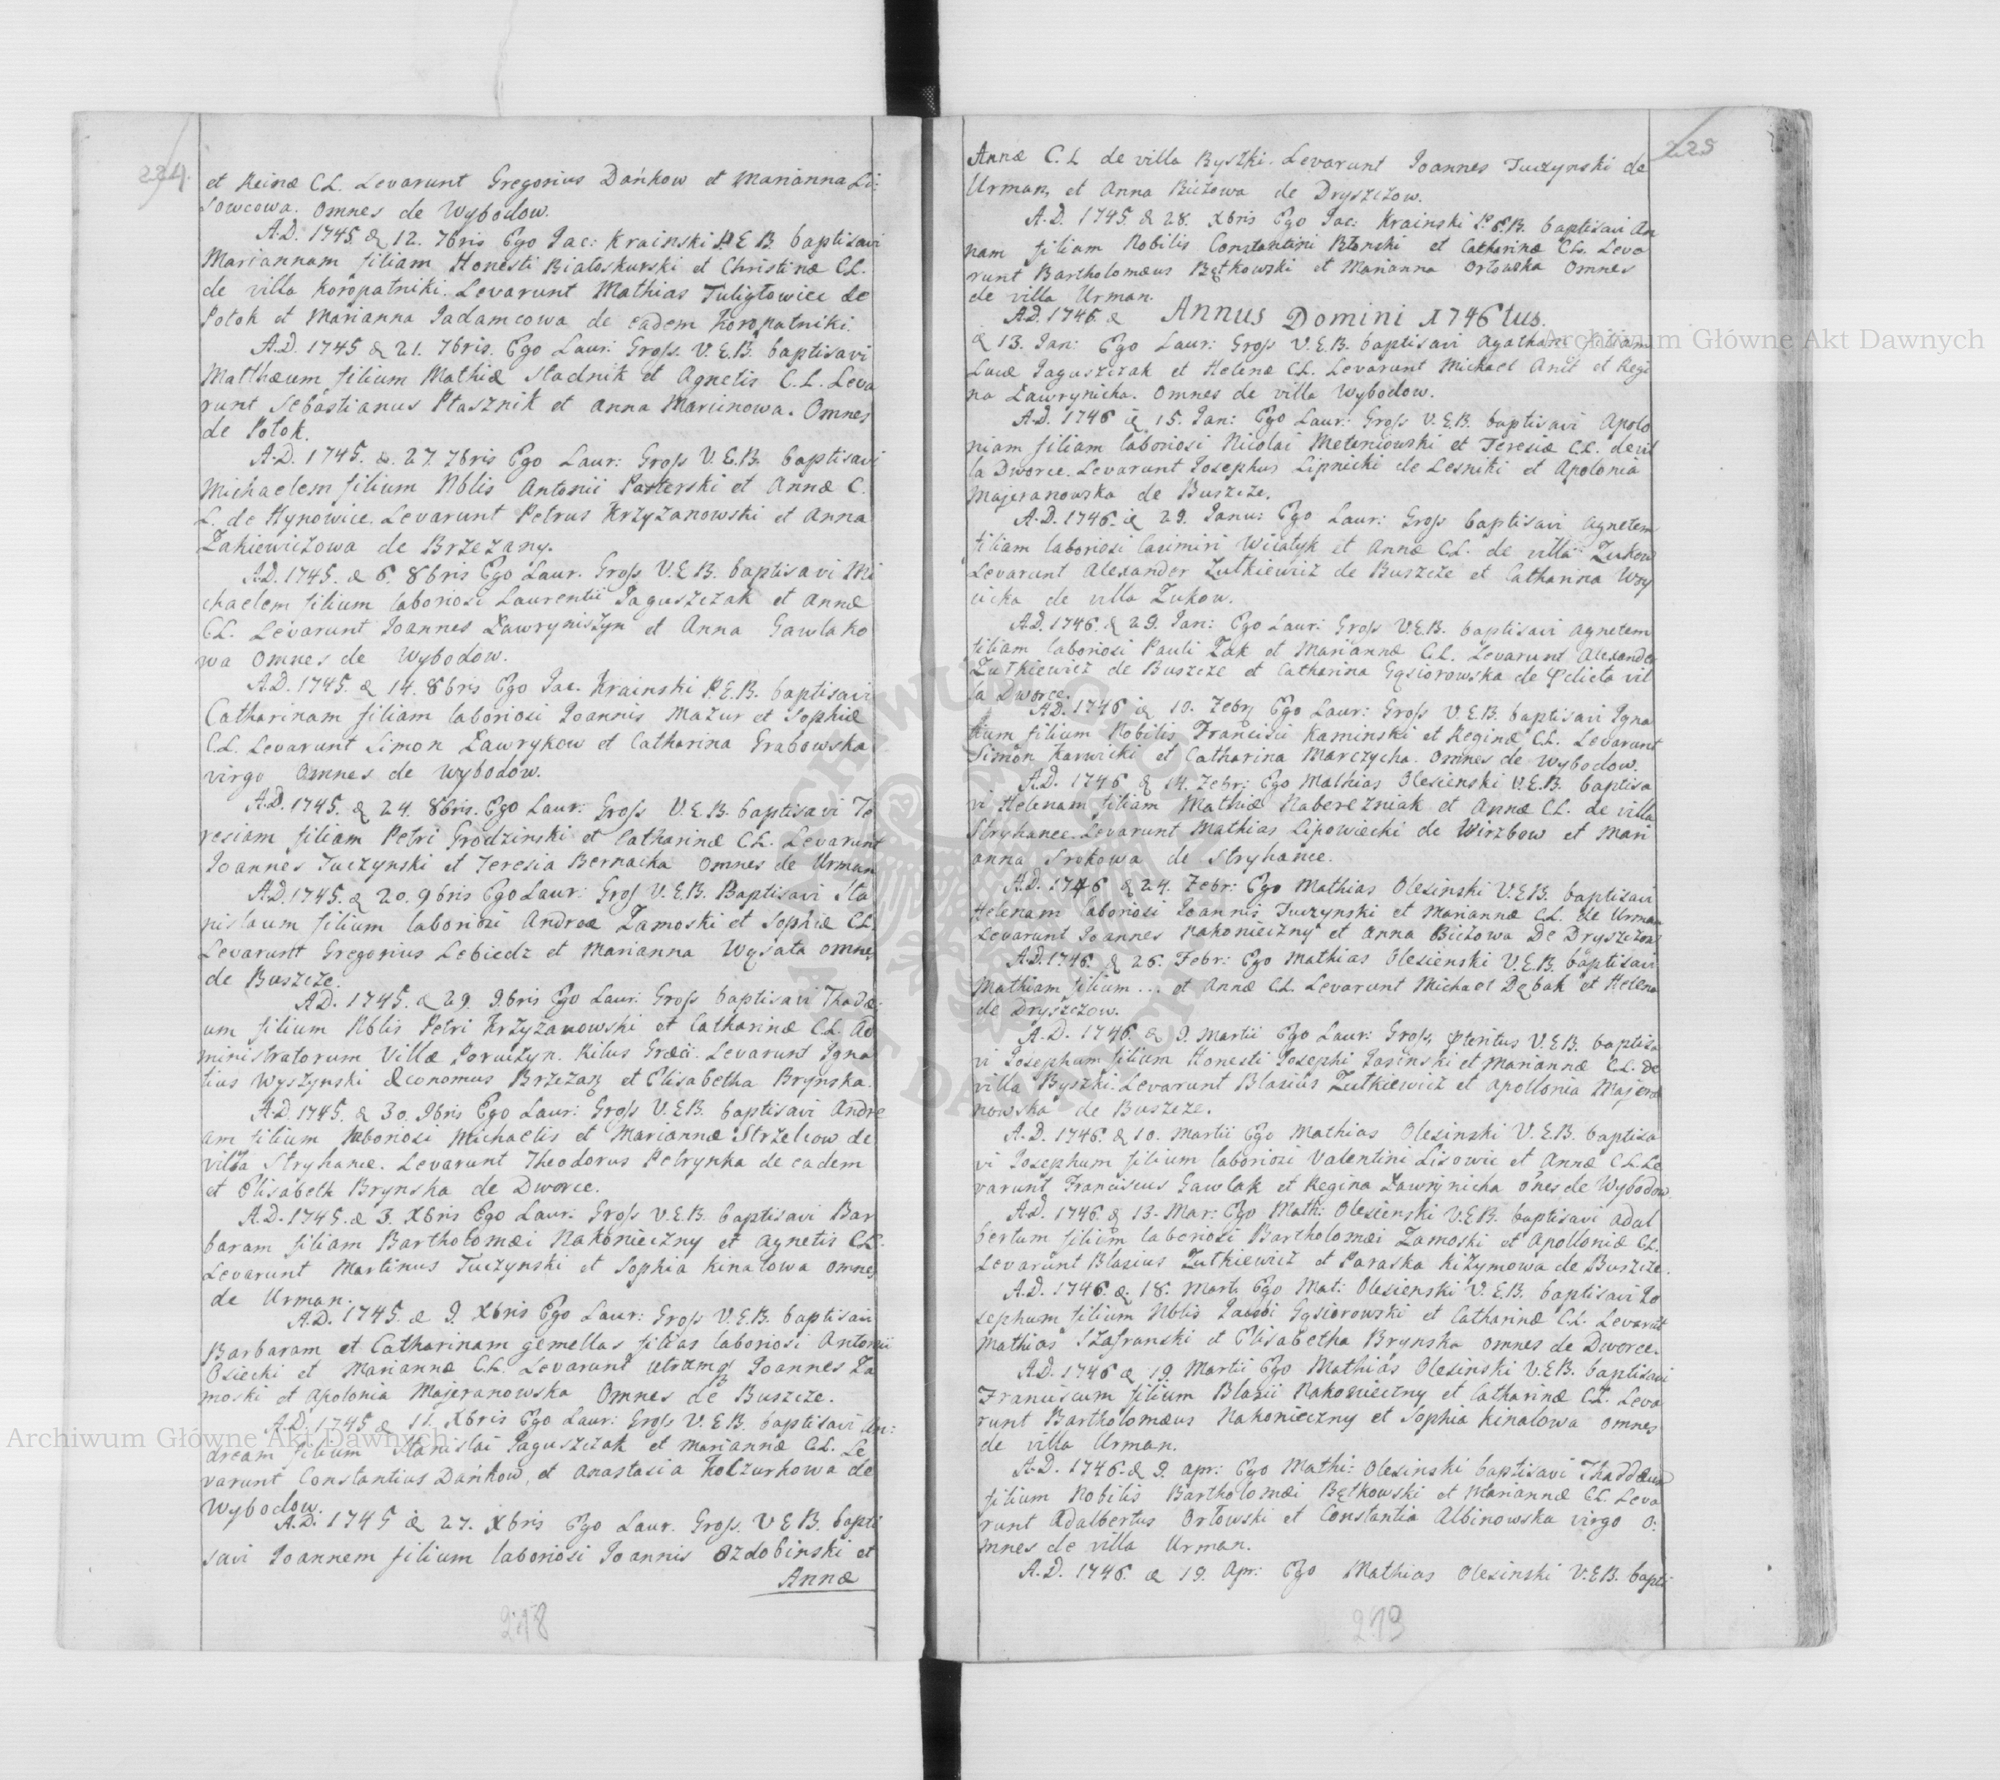 224.
et Reinæ CL. Levarunt Gregorius Dańkow et Marianna Li:
sowcowa. Omnes de Wybodow.
A.D. 1745 d 12. 7bris Ego Jac: Krainski P E B baptisavi
Mariannam filiam Honesti Białoskurski et Christinæ CL.
de villa Koropatniki. Levarunt Mathias Tuligłowicz de
Potok et Marianna Jadamcowa de eadem Koropatniki.
A.D. 1745 d 21. 7bris. Ego Laur: Gross. V.E.B. baptisavi
Matthæum filium Mathiæ Stadnik et Agnetis C.L. Leva
runt Sebastianus Ptasznik et Anna Marcinowa. Omnes
de Potok.
A.D. 1745. d. 27. 7bris Ego Laur: Gross V.E.B. baptisavi
Michaelem filium Nblis Antonii Pasterski et Annæ C.
L. de Hynowice. Levarunt Petrus Krzyżanowski et Anna
Żakiewiczowa de Brzezany.
A.D. 1745. d 6. 8bris Ego Laur. Gross V.E.B. baptisavi Mi
chaelem filium laboriosi Laurentii Jaguszczak et Annæ
CL. Levarunt Joannes Ławryniszyn et Anna Gawlako
wa Omnes de Wybodow.
A.D. 1745. d 14. 8bris Ego Jac. Krainski P.E.B. baptisavi
Catharinam filiam laboriosi Joannis Mazur et Sophiæ
C.L. Levarunt Simon Ławrykow et Catharina Grabowska
virgo Omnes de Wybodow.
A.D. 1745. d 24. 8bris. Ego Laur: Gross V.E.B. baptisavi Te
resiam filiam Petri Grodzinski et Catharinæ CL. Levarunt
Joannes Tuczynski et Teresia Bernacka Omnes de Urman
A.D. 1745. d 20. 9bris Ego Laur: Gross V.E.B. Baptisavi Sta
nislaum filium laboriosi Andreæ Zamoski et Sophiæ CL.
Levarunt Gregorius Lebiedz et Marianna Wysata omnes
de Buszcze.
A.D. 1745. d 29. 9.bris Ego Laur: Gross baptisavi Thadæ:
um filium Nblis Petri Krzyżanowski et Catharinæ CL. Ad
ministratorum Villæ Poruczyn. Ritus Græci. Levarunt Igna
tius Wyszynski Œconomus Brzezan et Elisabetha Brynska.
A.D. 1745. d 30. 9bris Ego Laur: Gross V.E.B. baptisavi Andre
am filium laboriosi Michaelis et Mariannæ Strzelcow de
villa Stryhance. Levarunt Theodorus Petrynka de eadem
et Elisabeth Brynska de Dworce.
A.D. 1745. d 3. Xbris Ego Laur: Gross V.E.B. baptisavi Bar
baram filiam Bartholomæi Nakonieczny et Agnetis CL.
Levarunt Martinus Tuczynski et Sophia Kinalowa omnes
de Urman.
A.D. 1745. d 9. Xbris Ego Laur: Gross V.E.B. baptisavi
Barbaram et Catharinam gemellas filias laboriosi Antonii
Osiecki et Mariannæ CL. Levarunt utramq Joannes Za
moski et Apolonia Majeranowska Omnes de Buszcze.
A.D. 1745 d 11. Xbris Ego Laur: Gross V.E.B. baptisavi An:
dream filium Stanislai Jaguszczak et Mariannæ CL. Le
varunt Constantius Dańkow, et Anastasia Kołzurkowa de
Wybodow.
A.D. 1745 d 27. Xbris Ego Laur. Gross. V E B. bapti
savi Joannem filium laboriosi Joannis Ozdobinski et
Annæ
218
225
Annæ C.L de villa Byszki. Levarunt Joannes Tuczynski de
Urman, et Anna Biczowa de Dryszczow.
A.D. 1745. d 28. Xbris Ego Jac: Krainski P.E.B. baptisavi An
nam filiam Nobilis Constantini Błonski et Catharinæ CL. Leva
runt Bartholomæus Bętkowski et Marianna Orłowska Omnes
de villa Urman.
A.D. 1746. d Annus Domini 1746tus.
d 13. Jan: Ego Laur: Gross V.E.B. baptisavi Agatham filiam
Lucæ Jaguszczak et Helenæ CL. Levarunt Michael Anit et Regi
na Ławrynicha. Omnes de villa Wybodow.
A.D. 1746 d 15. Jan: Ego Laur: Gross V.E.B. baptisavi Apolo
niam filiam laboriosi Nicolai Meteniowski et Teresiæ CL. de vil
la Dworce. Levarunt Josephus Lipnicki de Lesniki et Apolonia
Majeranowska de Buszcze.
A.D. 1746. d 29. Janu: Ego Laur: Gross baptisavi Agnetem
filiam laboriosi Casimiri Wisatyk et Annæ CL. de villa Zukow
Levarunt Alexander Zutkiewicz de Buszcze et Catharina Woy
cicka de villa Zukow.
A.D. 1746. d 29. Jan: Ego Laur: Gross V.E.B. baptisavi Agnetem
filiam laboriosi Pauli Zak et Mariannæ CL. Levarunt Alexander
Zutkiewicz de Buszcze et Catharina Gąsiorowska de Pdicta vil
la Dworce.
A.D. 1746 d 10. Febr Ego Laur: Gross V.E.B. baptisavi Igna
tium filium Nobilis Francisci Kaminski et Reginæ CL. Levarunt
Simon Karwicki et Catharina Marczycha. Omnes de Wybodow.
A.D. 1746 d 14. Febr: Ego Mathias Olesienski V.E.B. baptisa
vi Helenam filiam Mathiæ Naberezniak et Annæ CL. de villa
Stryhance. Levarunt Mathias Lipowiecki de Wirzbow et Mari
anna Srokowa de Stryhance.
A.D. 1746 d 24. Febr: Ego Mathias Olesinski V.E.B. baptisavi
Helenam laboriosi Joannis Tuczynski et Mariannæ CL. de Urman
Levarunt Joannes Nakonieczny et Anna Biczowa De Dryszczow
A.D. 1746. d 26. Febr: Ego Mathias Olesienski V.E.B. baptisavi
Mathiam filium ... et Annæ CL. Levarunt Michael Dębak et Helena
de Dryszczow.
A.D. 1746. d 9. Martii Ego Laur: Gross, Pteritus V.E.B. baptisa
vi Josephum filium Honesti Josephi Jasinski et Mariannæ C.L. De
villa Byszki. Levarunt Blasius Zutkiewicz et Apollonia Majera
nowska de Buszcze.
A.D. 1746. d 10. Martii Ego Mathias Olesinski V.E.B. baptisa
vi Josephum filium laboriosi Valentini Lisowic et Annæ C.L. Le
varunt Franciscus Gawlak et Regina Ławrynicha oñes de Wybodow.
A.D. 1746. d 13. Mar: Ego Math: Olesienski V.E.B. baptisavi Adal
bertum filium laboriosi Bartholomæi Zamoski et Apolloniæ CL.
Levarunt Blasius Zutkiewicz et Paraska Kiżymowa de Buszcze.
A.D. 1746. d. 18. Mart. Ego Mat: Olesienski V.E.B. baptisavi Jo
sephum filium Nblis Jacobi Gąsiorowski et Catharinæ CL. Levarut
Mathias Szafranski et Elisabetha Brynska omnes de Dworce.
A.D. 1746 d 19. Martii Ego Mathias Olesinski V.E.B. baptisavi
Franciscum filium Blasii Nakonieczny et Catharinæ CL. Leva
runt Bartholomæus Nakonieczny et Sophia Kinalowa omnes
de villa Urman.
A.D. 1746. d 9. Apr: Ego Mathi: Olesinski baptisavi Thaddæum
filium Nobilis Bartholomæi Bętkowski et Mariannæ CL. Leva
runt Adalbertus Orłowski et Constantia Albinowska virgo o:
mnes de villa Urman.
A.D. 1746. d 19. Apr: Ego Mathias Olesinski V.E.B. bapti
219
Archiwum Główne Akt Dawnych
Archiwum Główne Akt Dawnych